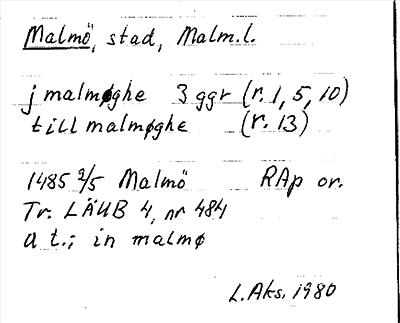 Malmö, stad, Malm.l.
j malmøghe 3 ggr (r. 1, 5, 10)
till malmøghe (r. 13)
1485 2/5 Malmö RAp or.
Tr. LÄUB 4, nr 484
a t.: in malmø
L. Aks. 1980